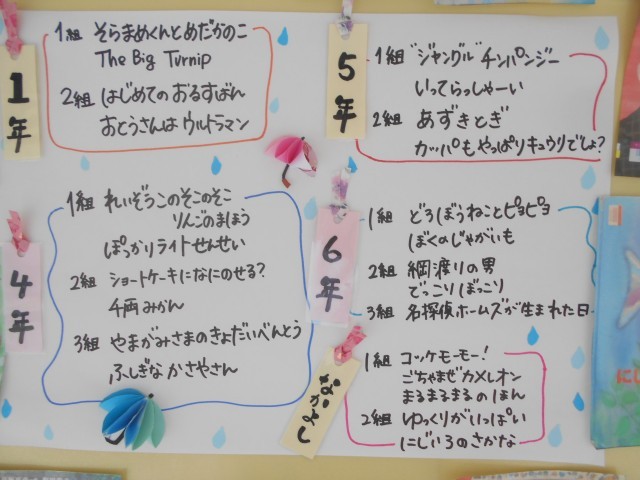 1年
1組 そらまめくんとめだかのこ
The Big Turnip
2組 はじめてのおるすばん
おとうさんはウルトラマン
4年
1組 れいぞうこのそこのそこ
りんごのまほう
ぽっかりライトせんせい
2組 ショートケーキになにのせる?
千両みかん
3組 やまがみさまのきょだいべんとう
ふしぎなかさやさん
5年
1組 "ジャングル"チンパンジー
いってらっしゃーい
2組 あずきとぎ
カッパもやっぱりキュウリでしょ?
6年
1組 どろぼうねことピヨピヨ
ぼくのじゃがいも
2組 綱渡りの男
でっこりぼっこり
3組 名探偵ホームズが生まれた日
なかよし
1組 コッケモーモー!
ごちゃまぜカメレオン
まるまるまるのほん
2組 ゆっくりがいっぱい
にじいろのさかな
にじ